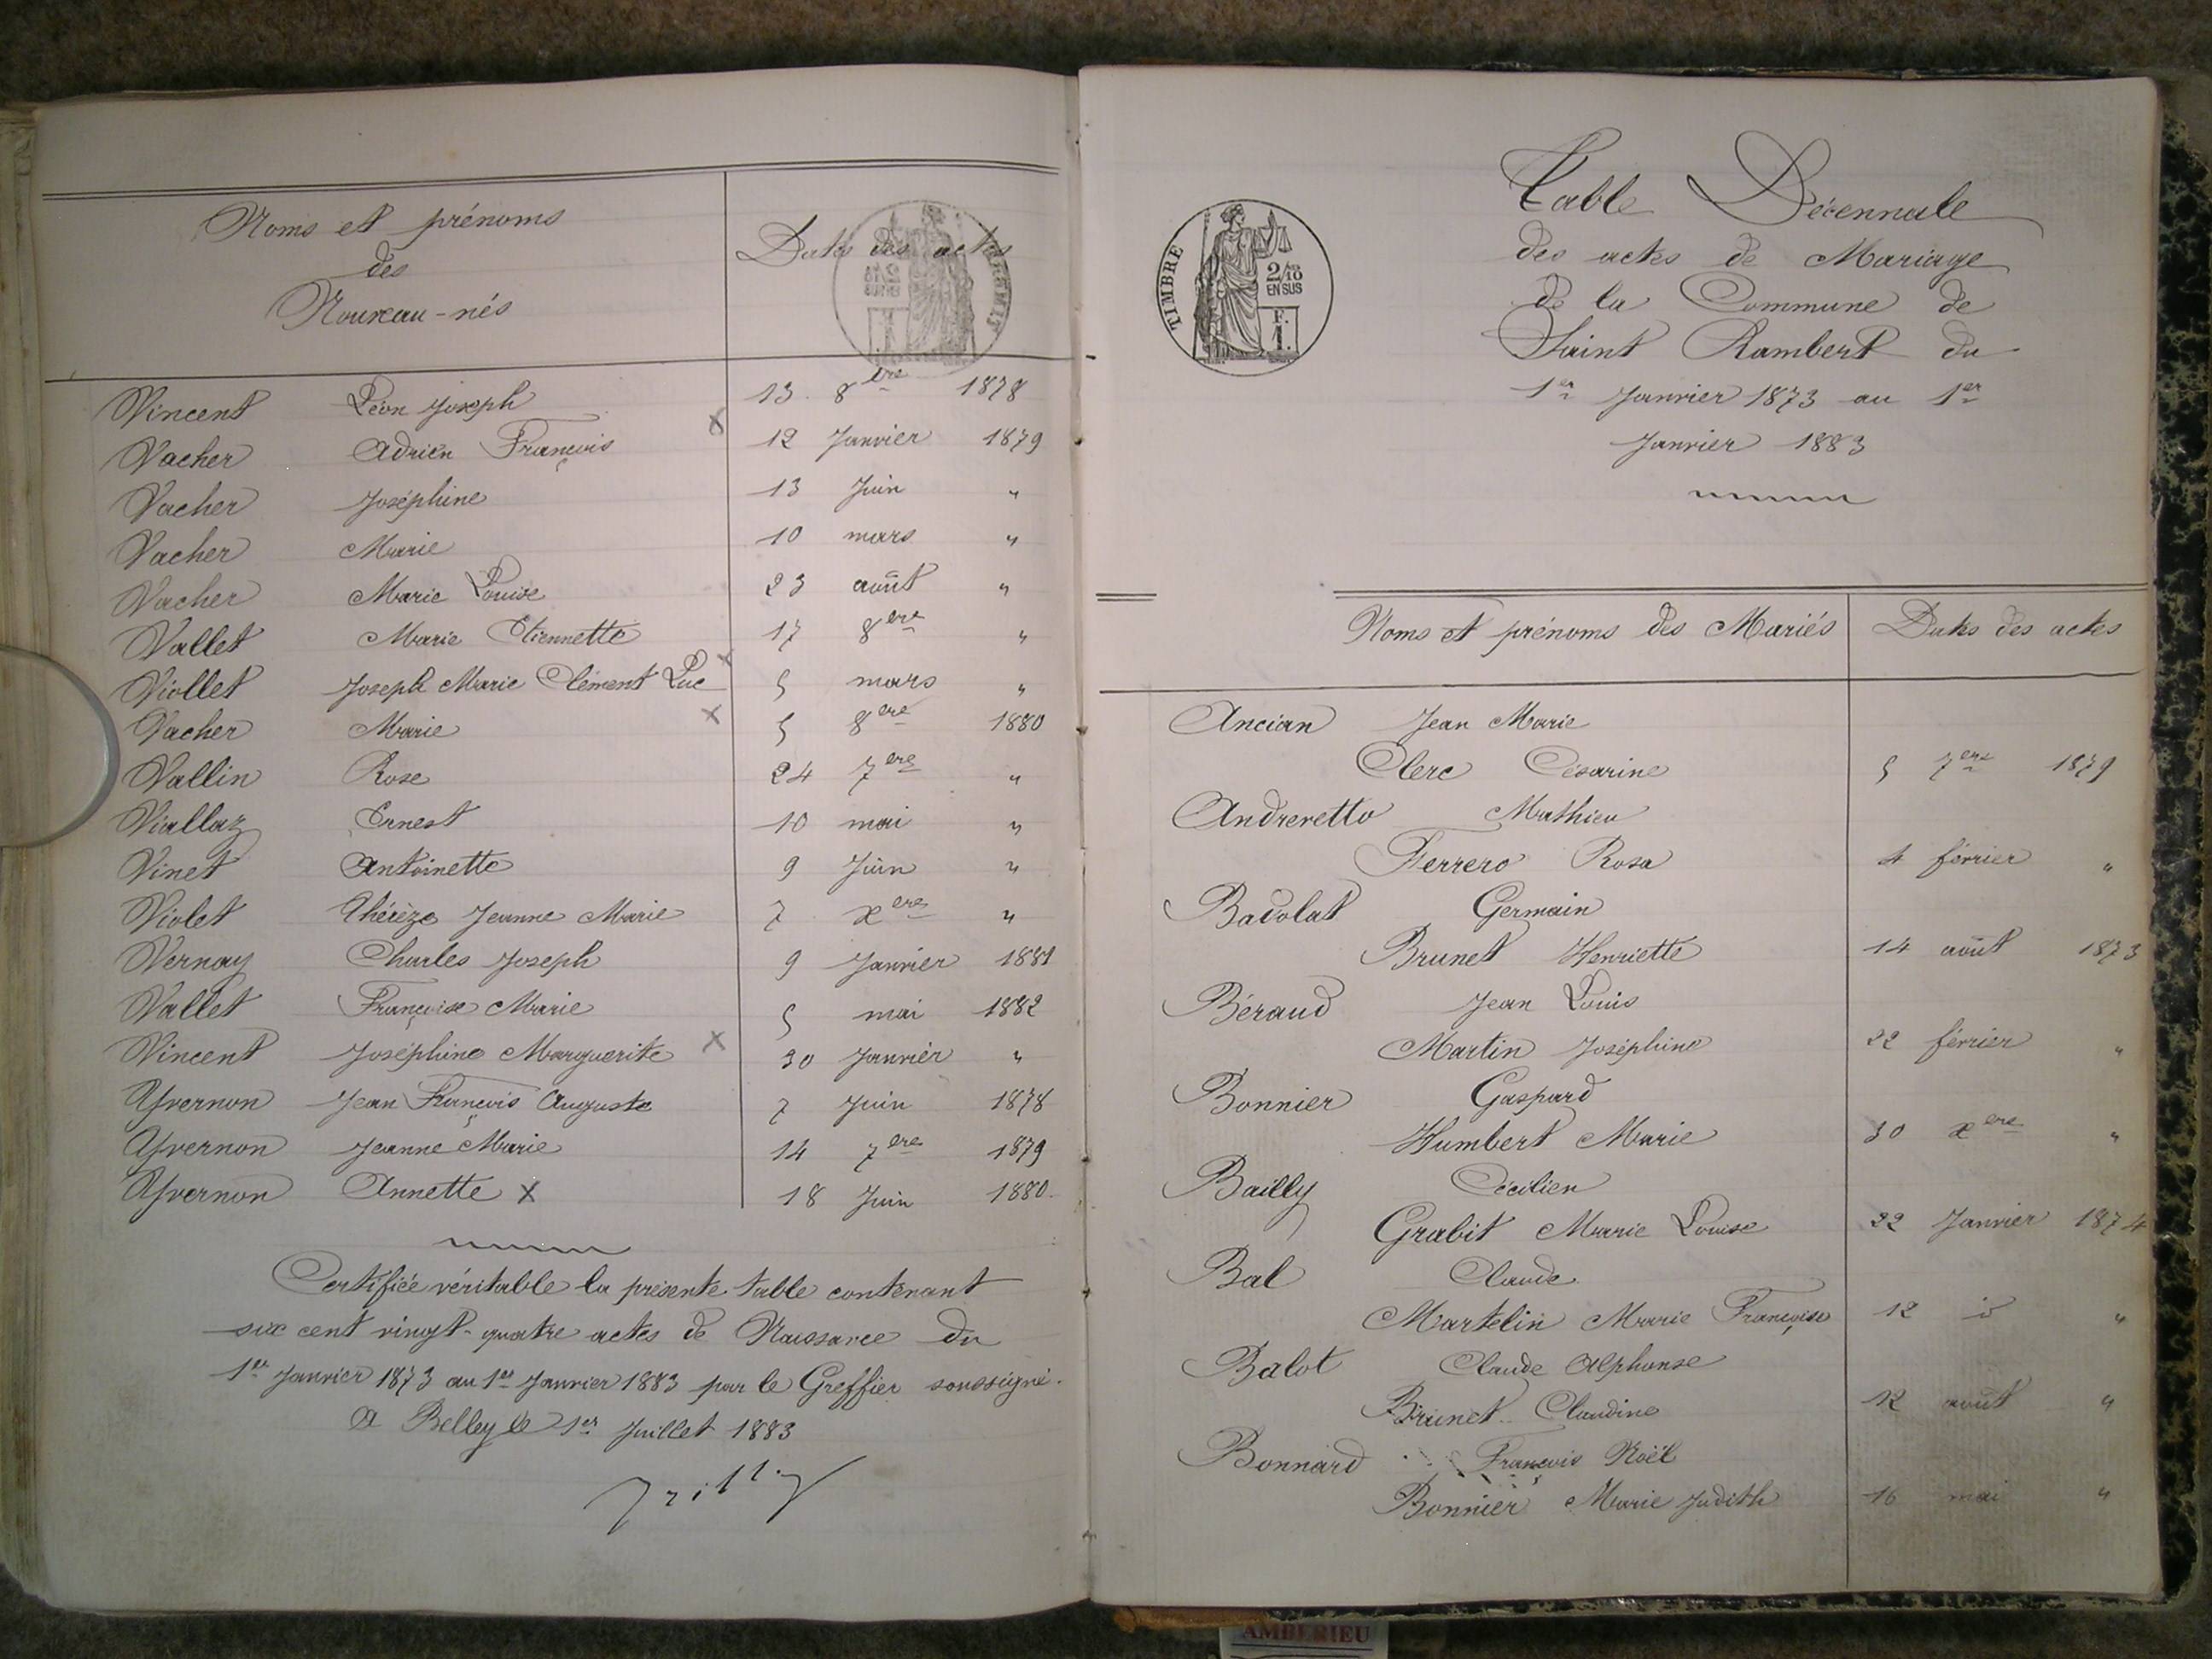 Noms et prénoms
des
Nouveau-nés
Dates des actes
Vincent Léon Joseph 13 8bre 1878
Vacher Adrien François x 12 Janvier 1879
Vacher Joséphine 13 Juin "
Vacher Marie 10 mars "
Vacher Marie Louise 23 août "
Vallet Marie Etiennette 17 8bre "
Viollet Joseph Marie Clément Luc x 5 mars "
Vacher Marie x 5 8bre 1880
Vallin Rose 24 7bre "
Viallaz Ernest 10 mai "
Vinet Antoinette 9 Juin "
Violet Thérèze Jeanne Marie 7 xbre "
Vernay Charles Joseph 9 Janvier 1881
Vallet Françoise Marie 5 mai 1882
Vincent Joséphine Marguerite x 30 Janvier "
Yvernon Jean François Auguste 7 Juin 1878
Yvernon Jeanne Marie 14 7bre 1879
Yvernon Annette x 18 Juin 1880
Certifiée véritable la présente table contenant
six cent vingt-quatre actes de Naissance du
1er Janvier 1873 au 1er Janvier 1883 par le Greffier soussigné.
A Belley le 1er Juillet 1883
TIMBRE
2/10
EN SUS
F.
1.
Table Décennale
des actes de Mariage
de la Commune de
Saint Rambert du
1er Janvier 1873 au 1er
Janvier 1883
Noms et prénoms des Mariés Dates des actes
Ancian Jean Marie
Clerc Césarine 5 7bre 1879
Andreretto Mathieu
Ferrero Rosa 4 février "
Badolat Germain
Brunet Henriette 14 août 1873
Béraud Jean Louis
Martin Joséphine 22 février "
Bonnier Gaspard
Humbert Marie 30 xbre "
Bailly Cécilien
Grabit Marie Louise 22 Janvier 1874
Bal Claude
Martelin Marie Françoise 12 id "
Balot Claude Alphonse
Brunet Claudine 12 août "
Bonnard François Noël
Bonnier Marie Judith 16 mai "
AMBERIEU